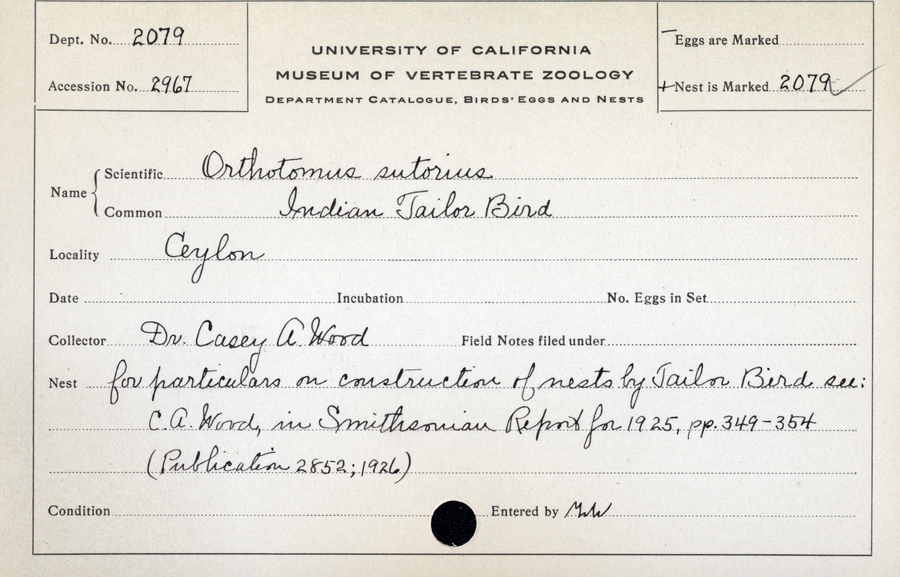 Dept. No. 2079
Accession No. 2967
UNIVERSITY OF CALIFORNIA
MUSEUM OF VERTEBRATE ZOOLOGY
DEPARTMENT CATALOGUE, BIRDS' EGGS AND NESTS
Eggs are Marked
+ Nest is Marked 2079
Name
Scientific Orthotomus sutorius
Common Indian Tailor Bird
Locality Ceylon
Date Incubation No. Eggs in Set
Collector Dr. Casey A. Wood Field Notes filed under
Nest for particulars on construction of nests by Tailor Bird see:
C.A. Wood, in Smithsonian Report for 1925, pp. 349-354
(Publication 2852; 1926)
Condition Entered by